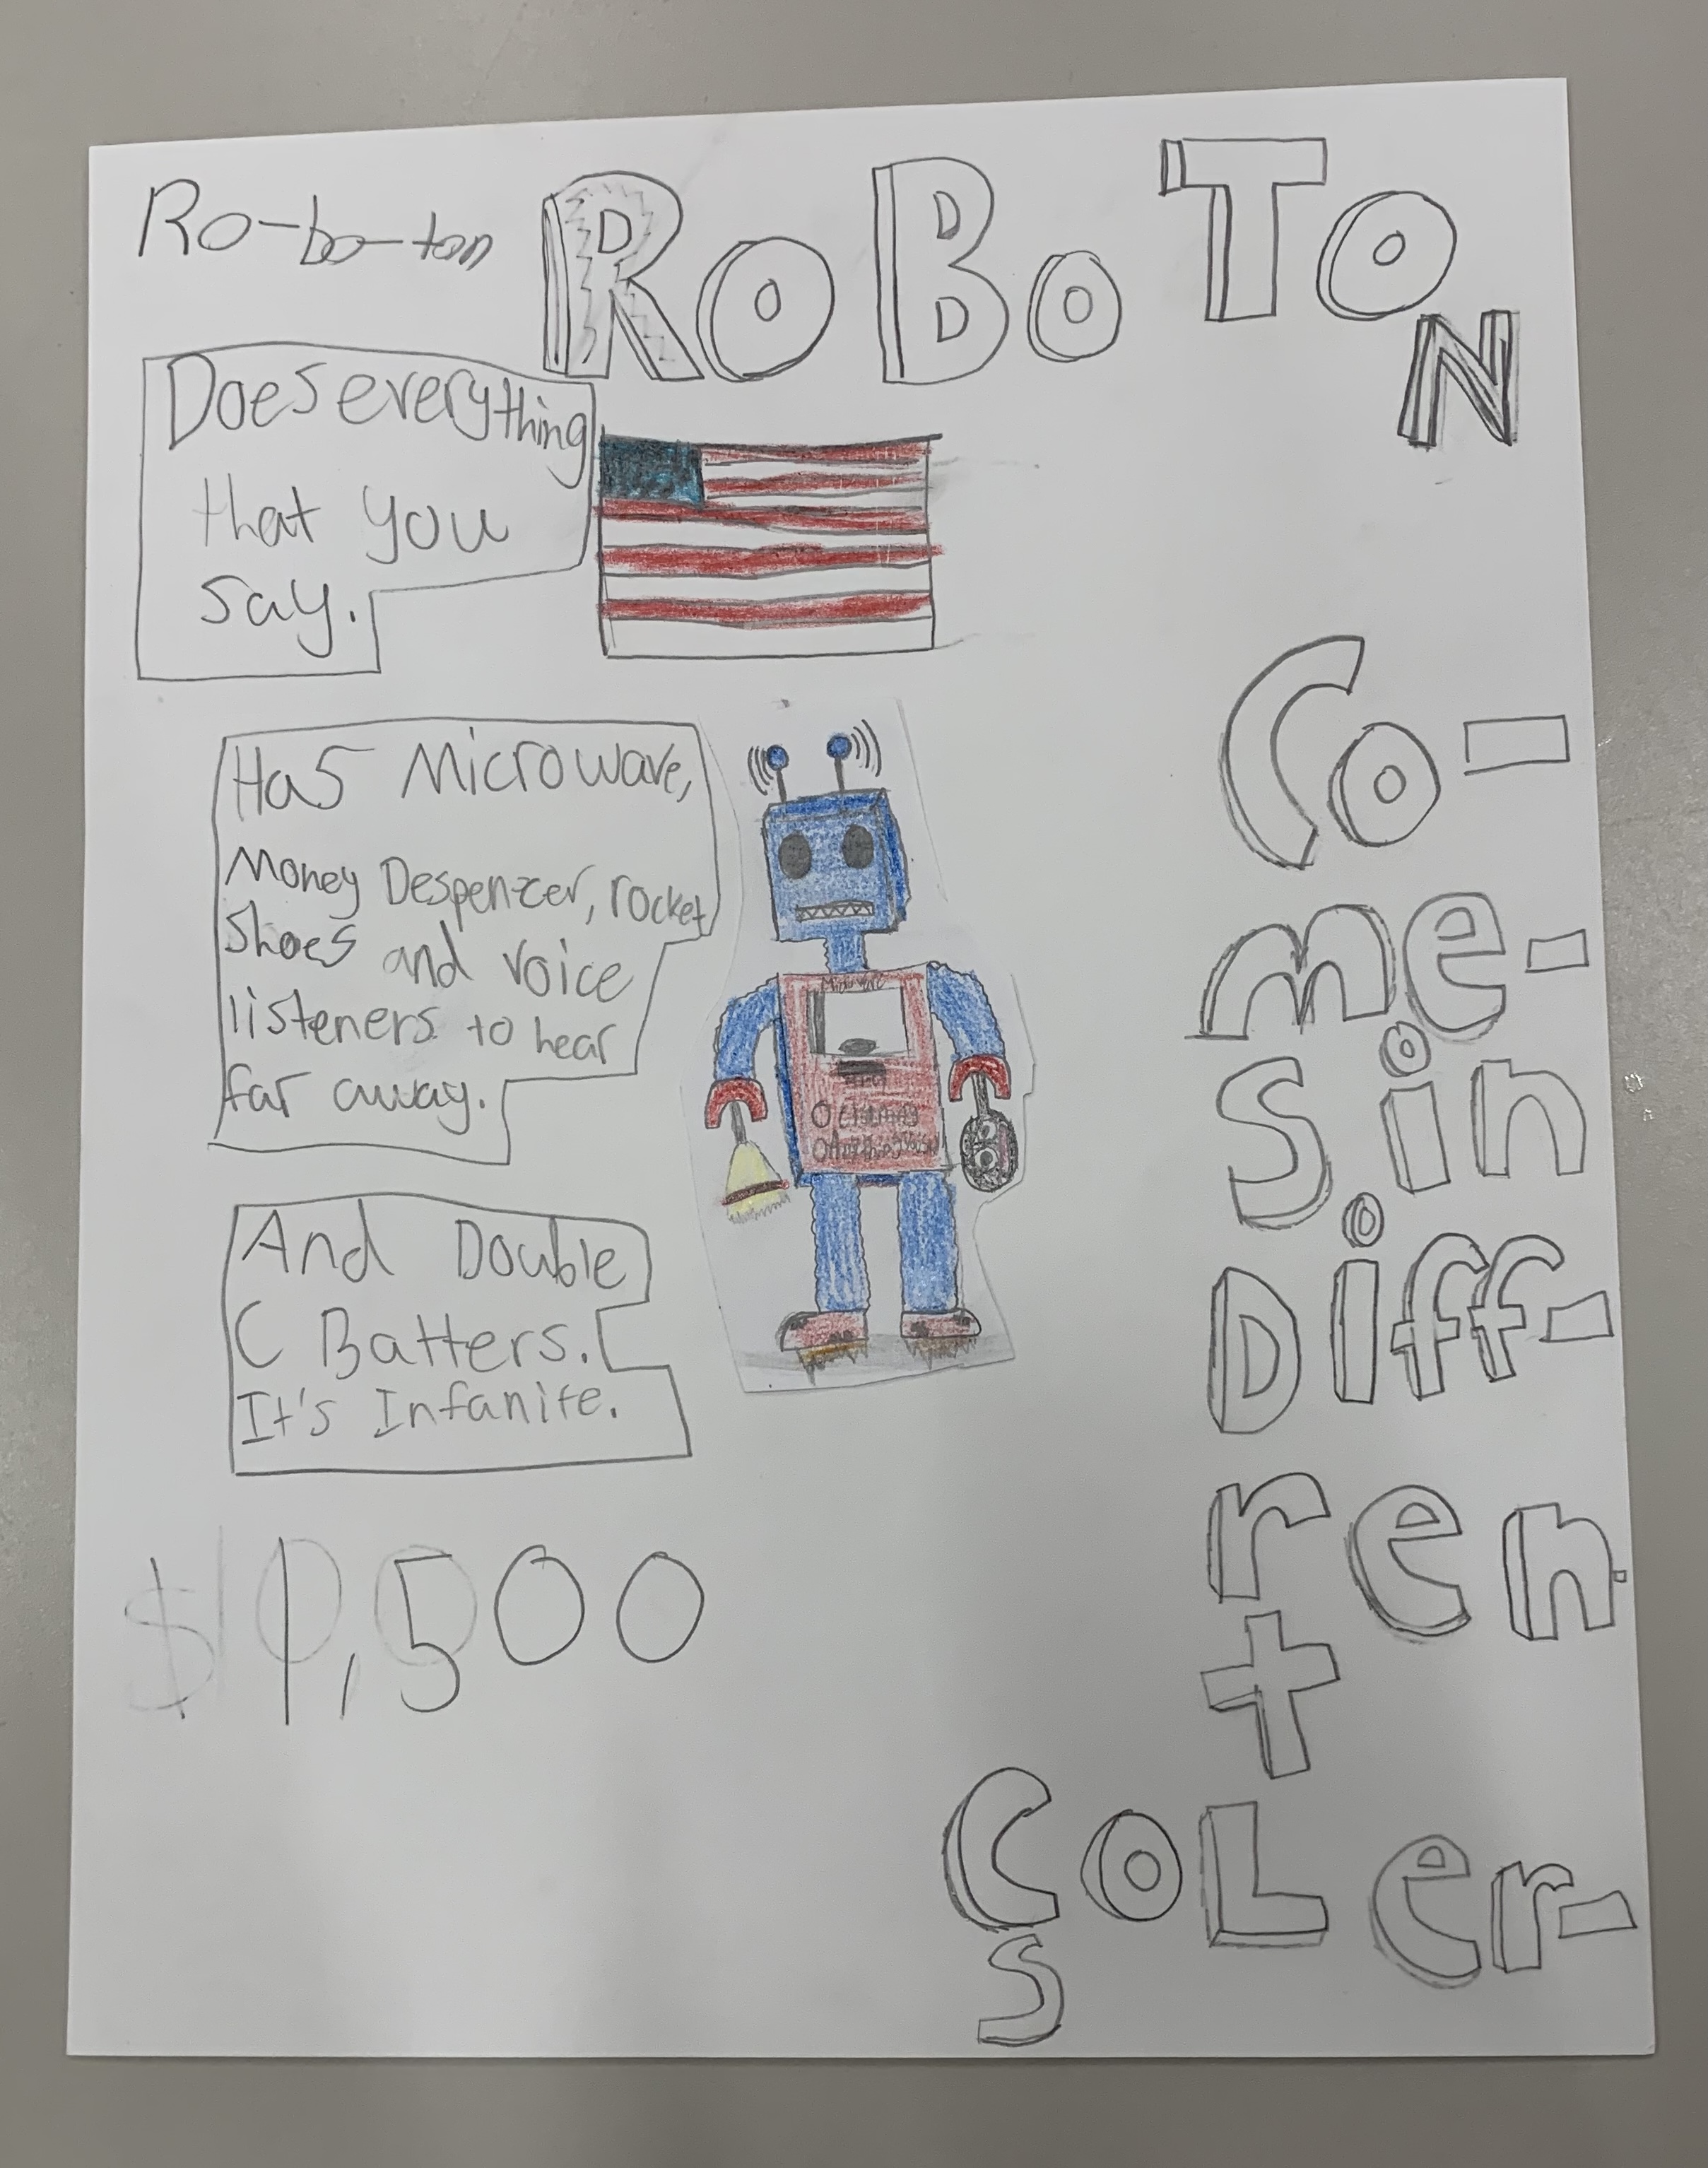 Ro-bo-ton
RoBoToN
Does everything
that you
say.
Has Microwave,
Money Despenzer, rocket
Shoes and voice
listeners to hear
far away.
And Double
C Batters.
It's Infanite.
$1,500
Microwave
Co-
me-
s in
Diff-
ren
t
CoLer-
s